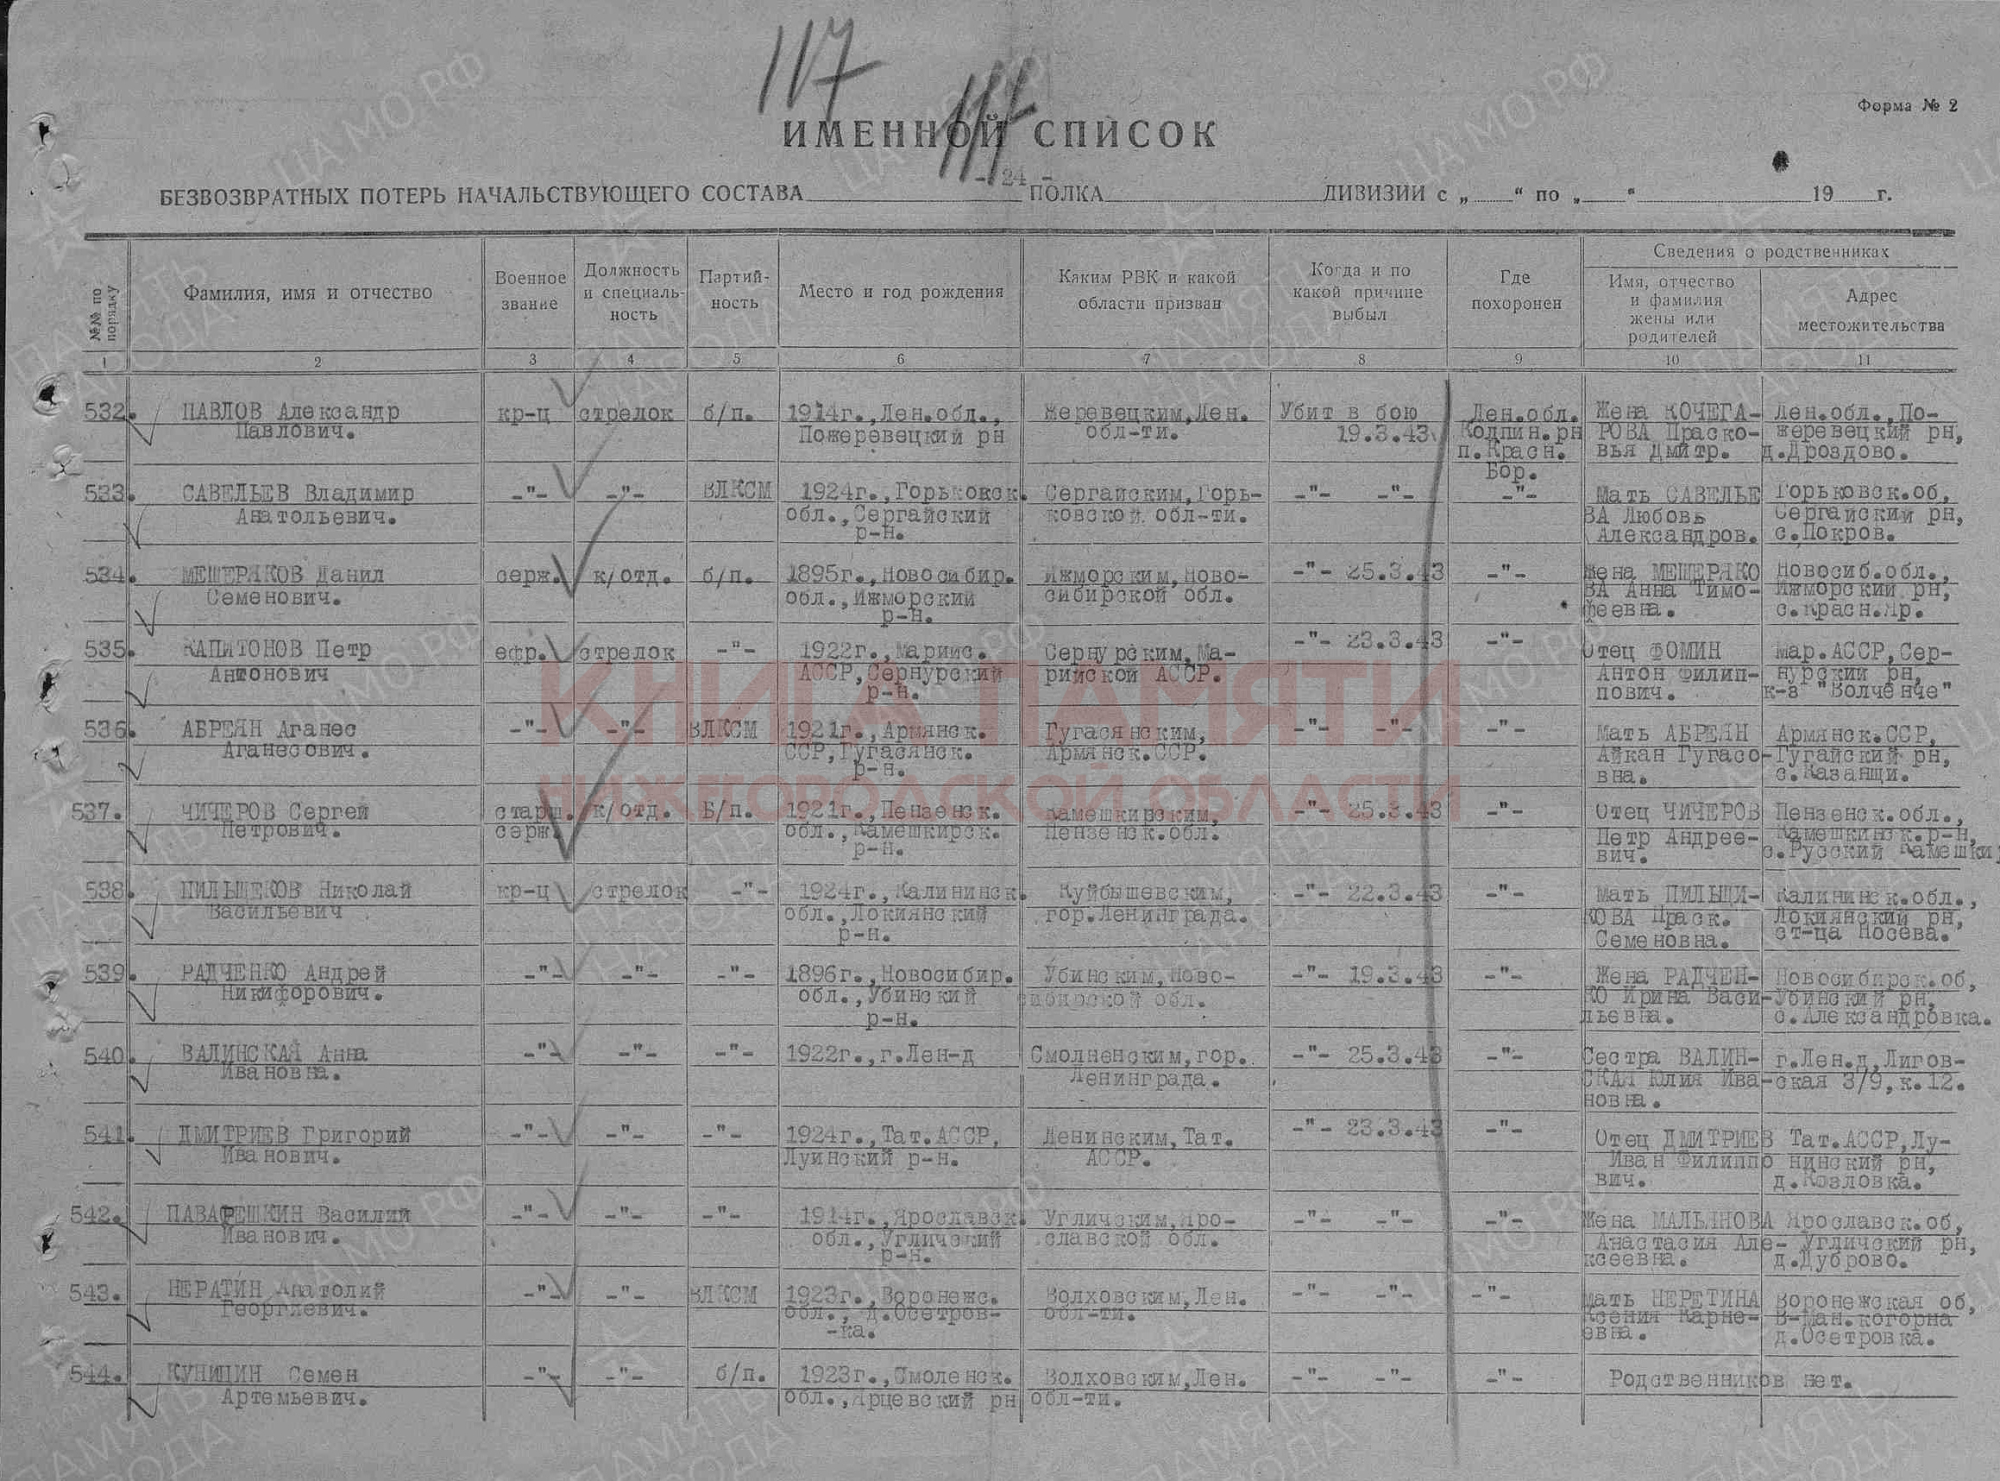 117
Форма № 2
ИМЕННОЙ СПИСОК
- 24 -
БЕЗВОЗВРАТНЫХ ПОТЕРЬ НАЧАЛЬСТВУЮЩЕГО СОСТАВА ПОЛКА ДИВИЗИИ с „ “ по „ “ 19 г.
№№ по порядку
Фамилия, имя и отчество
Военное звание
Должность и специаль-ность
Партий-ность
Место и год рождения
Каким РВК и какой области призван
Когда и по какой причине выбыл
Где похоронен
Сведения о родственниках
Имя, отчество и фамилия жены или родителей
Адрес местожительства
1 2 3 4 5 6 7 8 9 10 11
532. ПАВЛОВ Александр кр-ц стрелок б/п. 1914г.,Лен.обл., Жеревецким,Лен. Убит в бою Лен.обл. Жена КОЧЕГА- Лен.обл.,По-
Павлович. Пожеревецкий рн обл-ти. 19.3.43 Колпин.рн РОВА Праско- жеревецкий рн,
п.Красн. вья Дмитр. д.Дроздово.
Бор.
533. САВЕЛЬЕВ Владимир -"- -"- ВЛКСМ 1924г.,Горьковск. Сергайским,Горь- -"- -"- -"- Мать САВЕЛЬЕ Горьковск.об,
Анатольевич. обл.,Сергайский ковской обл-ти. ВА Любовь Сергайский рн,
р-н. Александров. с.Покров.
534. МЕЩЕРЯКОВ Данил серж. к/отд. б/п. 1895г.,Новосибир. Ижморским,Ново- -"- 25.3.43 -"- Жена МЕЩЕРЯКО Новосиб.обл.,
Семенович. обл.,Ижморский сибирской обл. ВА Анна Тимо- Ижморский рн,
р-н. феевна. с.Красн.Яр.
535. КАПИТОНОВ Петр ефр. стрелок -"- 1922г.,Марийс. Сернурским,Ма- -"- 23.3.43 -"- Отец ФОМИН Мар.АССР,Сер-
Антонович АССР,Сернурский рийской АССР. Антон Филип- нурский рн,
р-н. пович. к-з "Волченче"
536. АБРЕЯН Аганес -"- -"- ВЛКСМ 1921г.,Армянск. Гугасянским, -"- -"- -"- Мать АБРЕЯН Армянск.ССР,
Аганесович. ССР,Гугасянск. Армянск.ССР. Айкан Гугасо- Гугайский рн,
р-н. вна. с.Казанщи.
537. ЧИЧЕРОВ Сергей старш. к/отд. Б/п. 1921г.,Пензенск. Камешкирским, -"- 25.3.43 -"- Отец ЧИЧЕРОВ Пензенск.обл.,
Петрович. серж. обл.,Камешкирск. Пензенск.обл. Петр Андрее- Камешкинск.р-н,
р-н. вич. с.Русский Камешки
538. ПИЛЬЩЕКОВ Николай кр-ц стрелок -"- 1924г.,Калининск. Куйбышевским, -"- 22.3.43 -"- Мать ПИЛЬЩИ- Калининск.обл.,
Васильевич обл.,Локиянский гор.Ленинграда. КОВА Праск. Локиянский рн,
р-н. Семеновна. ст-ца Носева.
539. РАДЧЕНКО Андрей -"- -"- -"- 1896г.,Новосибир. Убинским,Ново- -"- 19.3.43 -"- Жена РАДЧЕН- Новосибирск.об,
Никифорович. обл.,Убинский сибирской обл. КО Ирина Васи- Убинский рн,
р-н. льевна. с.Александровка.
540. ВАЛИНСКАЯ Анна -"- -"- -"- 1922г.,г.Лен-д Смолненским,гор. -"- 25.3.43 -"- Сестра ВАЛИН- г.Лен.д,Лигов-
Ивановна. Ленинграда. СКАЯ Юлия Ива- ская 3/9,к.12.
новна.
541. ДМИТРИЕВ Григорий -"- -"- -"- 1924г.,Тат.АССР, Ленинским,Тат. -"- 23.3.43 -"- Отец ДМИТРИЕВ Тат.АССР,Лу-
Иванович. Луинский р-н. АССР. Иван Филиппо нинский рн,
вич. д.Козловка.
542. Василий -"- -"- -"- 1914г.,Ярославск. Угличским,Яро- -"- -"- -"- Жена МАЛЬЯНОВА Ярославск.об,
Иванович. обл.,Угличский славской обл. Анастасия Але- Угличский рн,
р-н. ксеевна. д.Дуброво.
543. НЕРАТИН Анатолий -"- -"- ВЛКСМ 1923г.,Воронежс. Волховским,Лен. -"- -"- -"- Мать НЕРЕТИНА Воронежская об,
Георгиевич. обл., д.Осетров- обл-ти. Ксения Карне- В-Ман.когорна
-ка. евна. д.Осетровка.
544. КУНИЦИН Семен -"- -"- б/п. 1923г.,Смоленск. Волховским,Лен. -"- -"- -"- Родственников нет.
Артемьевич. обл.,Ярцевский рн обл-ти.
КНИГА ПАМЯТИ
НИЖЕГОРОДСКОЙ ОБЛАСТИ
ЦА МО РФ
ПАМЯТЬ НАРОДА